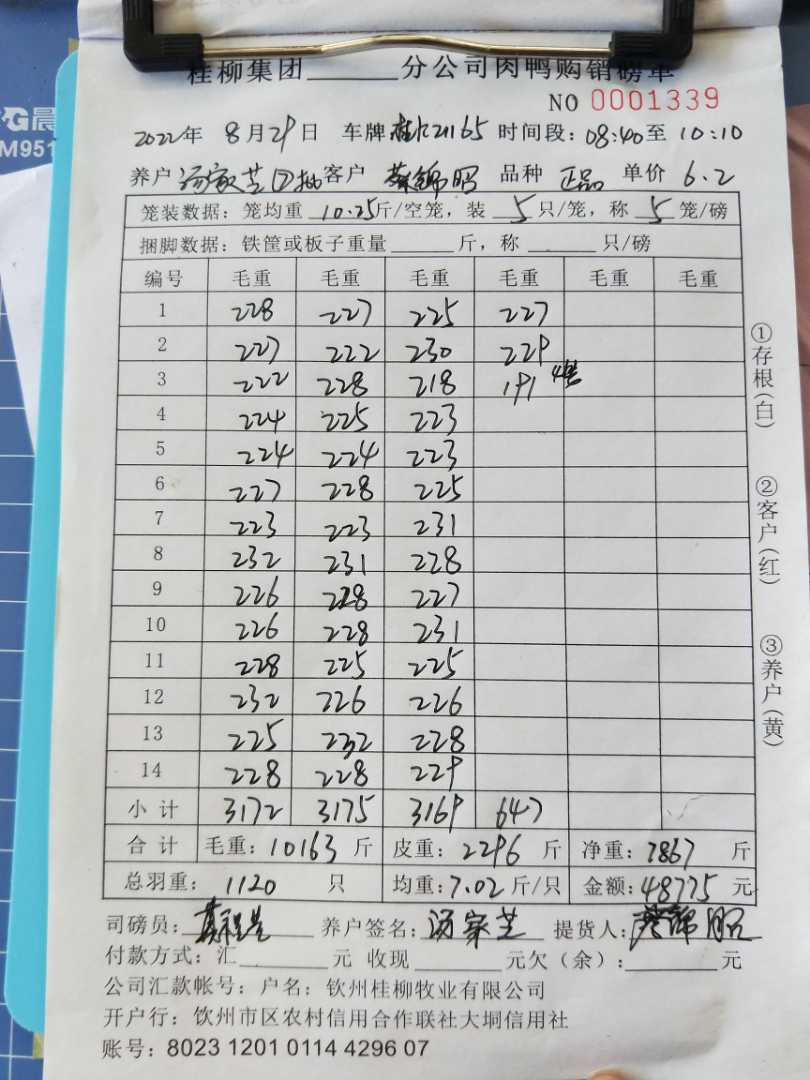 桂柳集团______分公司肉鸭购销磅单
NO 0001339
2022年 8月29日 车牌 21165 时间段：08:40至10:10
养户 汤家芝 客户 蔡锦昭 品种 正品 单价 6.2
笼装数据：笼均重 10.25斤/空笼，装 5 只/笼，称 5 笼/磅
捆脚数据：铁筐或板子重量______斤，称______只/磅
编号 毛重 毛重 毛重 毛重 毛重 毛重
1 228 227 225 227
2 227 222 230 229
3 222 228 218 191 4笼
4 224 225 223
5 224 224 223
6 227 228 225
7 223 223 231
8 232 231 228
9 226 228 227
10 226 228 231
11 228 225 225
12 232 226 226
13 225 232 228
14 228 228 229
小计 3172 3175 3169 647
合计 毛重：10163 斤 皮重：2296 斤 净重：7867 斤
总羽重：1120 只 均重：7.02斤/只 金额：48775元
司磅员： 养户签名：汤家芝 提货人：蔡锦昭
付款方式：汇______元 收现______元欠（余）：______元
公司汇款帐号：户名：钦州桂柳牧业有限公司
开户行：钦州市区农村信用合作联社大垌信用社
账号：8023 1201 0114 4296 07
①存根（白） ②客户（红） ③养户（黄）
G晨
M951